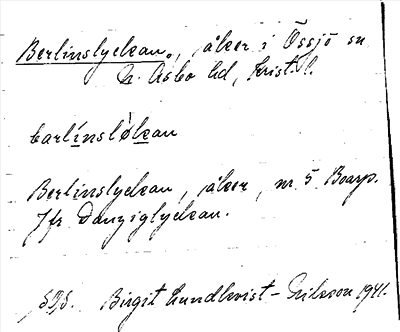 Berlinslyckan, åker i Össjö sn
N. Åsbo hd, Krist. l.
bærlínsløkan
Berlinslyckan, åker, nr 5 Boarp.
Jfr Danziglyckan.
Birgit Lundkvist-Eriksson 1941.